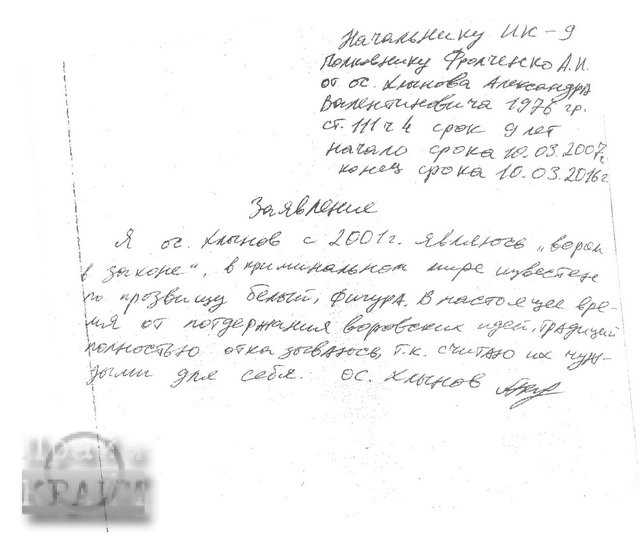 Начальнику ИК-9
полковнику Фролченко А.И.
от ос. Хлынова Александра
Валентиновича 1976 гр.
ст. 111 ч 4 срок 9 лет
начало срока 10.03.2007г.
конец срока 10.03.2016г.
Заявление
Я ос. Хлынов с 2001г. являюсь „вором
в законе“, в криминальном мире известен
по прозвищу белый, фигура. В настоящее вре-
мя от потдержания воровских идей, традиций
полностью отказываюсь, т.к. считаю их чуж-
дыми для себя. ос. Хлынов